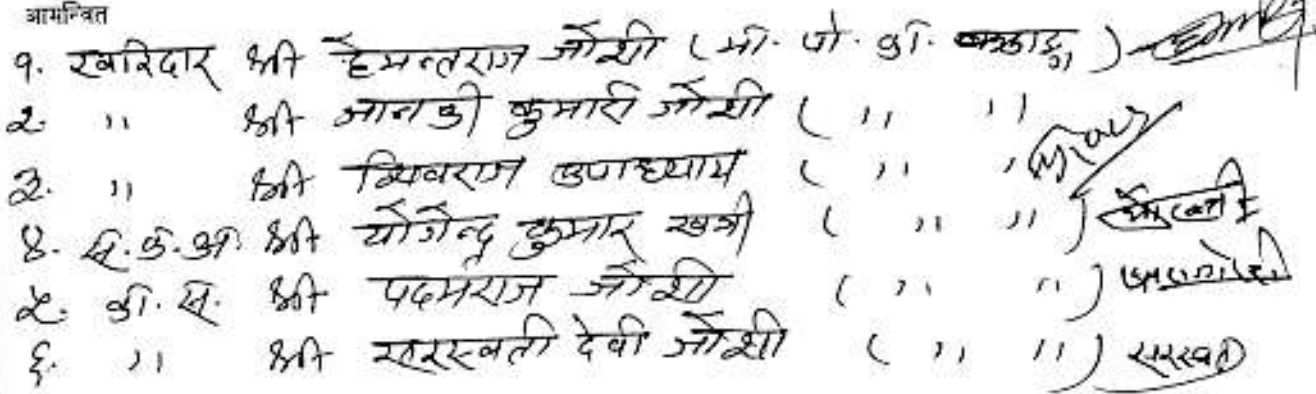 आमन्त्रित
१. खरिदार श्री हेमन्तराज जोशी ( मा. पो. का. )
२. " श्री जानकी कुमारी जोशी ( " " )
३. " श्री शिवराज उपाध्याय ( " " )
४. स.क.अ. श्री योगेन्द्र कुमार खत्री ( " " )
५. का. स. श्री पदमराज जोशी ( " " )
६. " श्री सरस्वती देवी जोशी ( " " ) सरस्वती